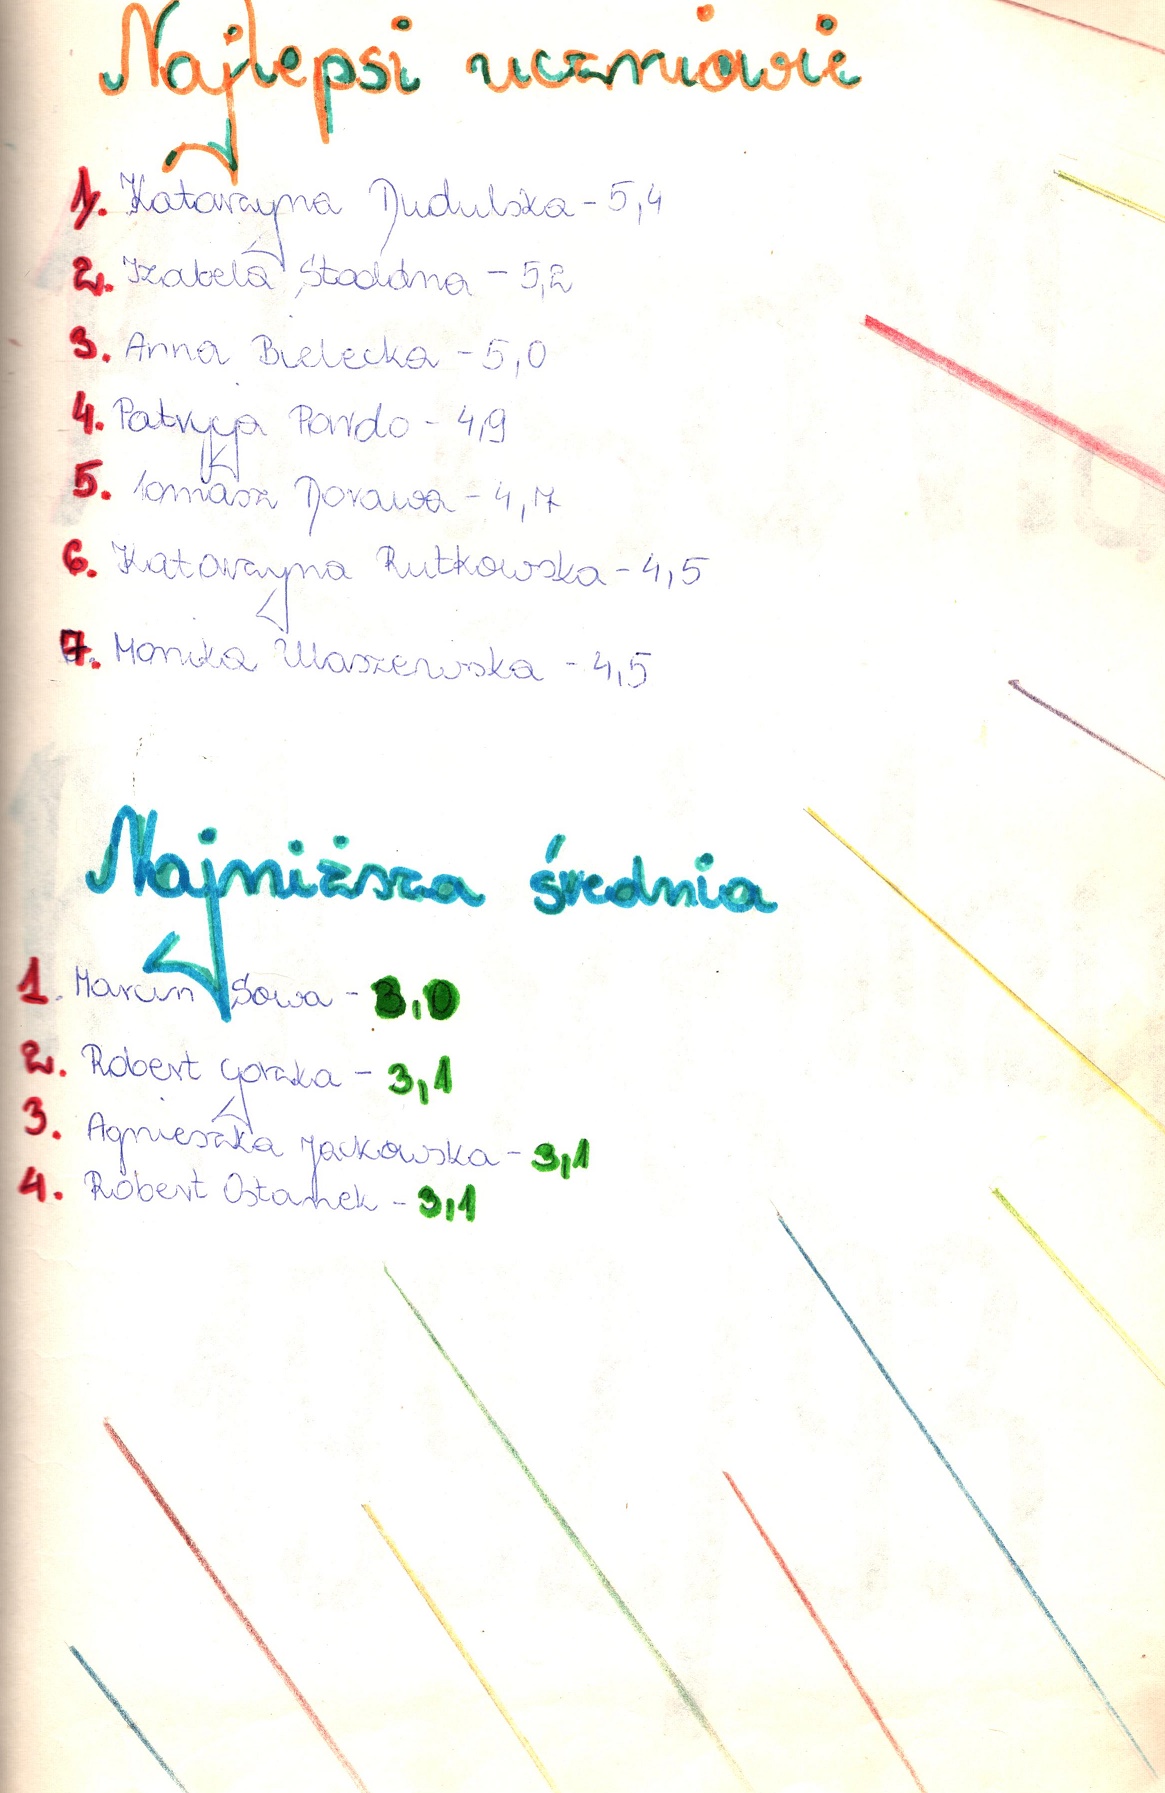 Najlepsi uczniowie
1. Katarzyna Dudulska - 5,4
2. Izabela - 5,2
3. Anna Bielecka - 5,0
4. Patrycja Pardo - 4,9
5. Tomasz Dorawa - 4,7
6. Katarzyna Rutkowska - 4,5
7. Monika Waszewska - 4,5
Najniższa średnia
1. Marcin Sowa - 3,0
2. Robert Gorzka - 3,1
3. Agnieszka Jackowska - 3,1
4. Robert Ostanek - 3,1